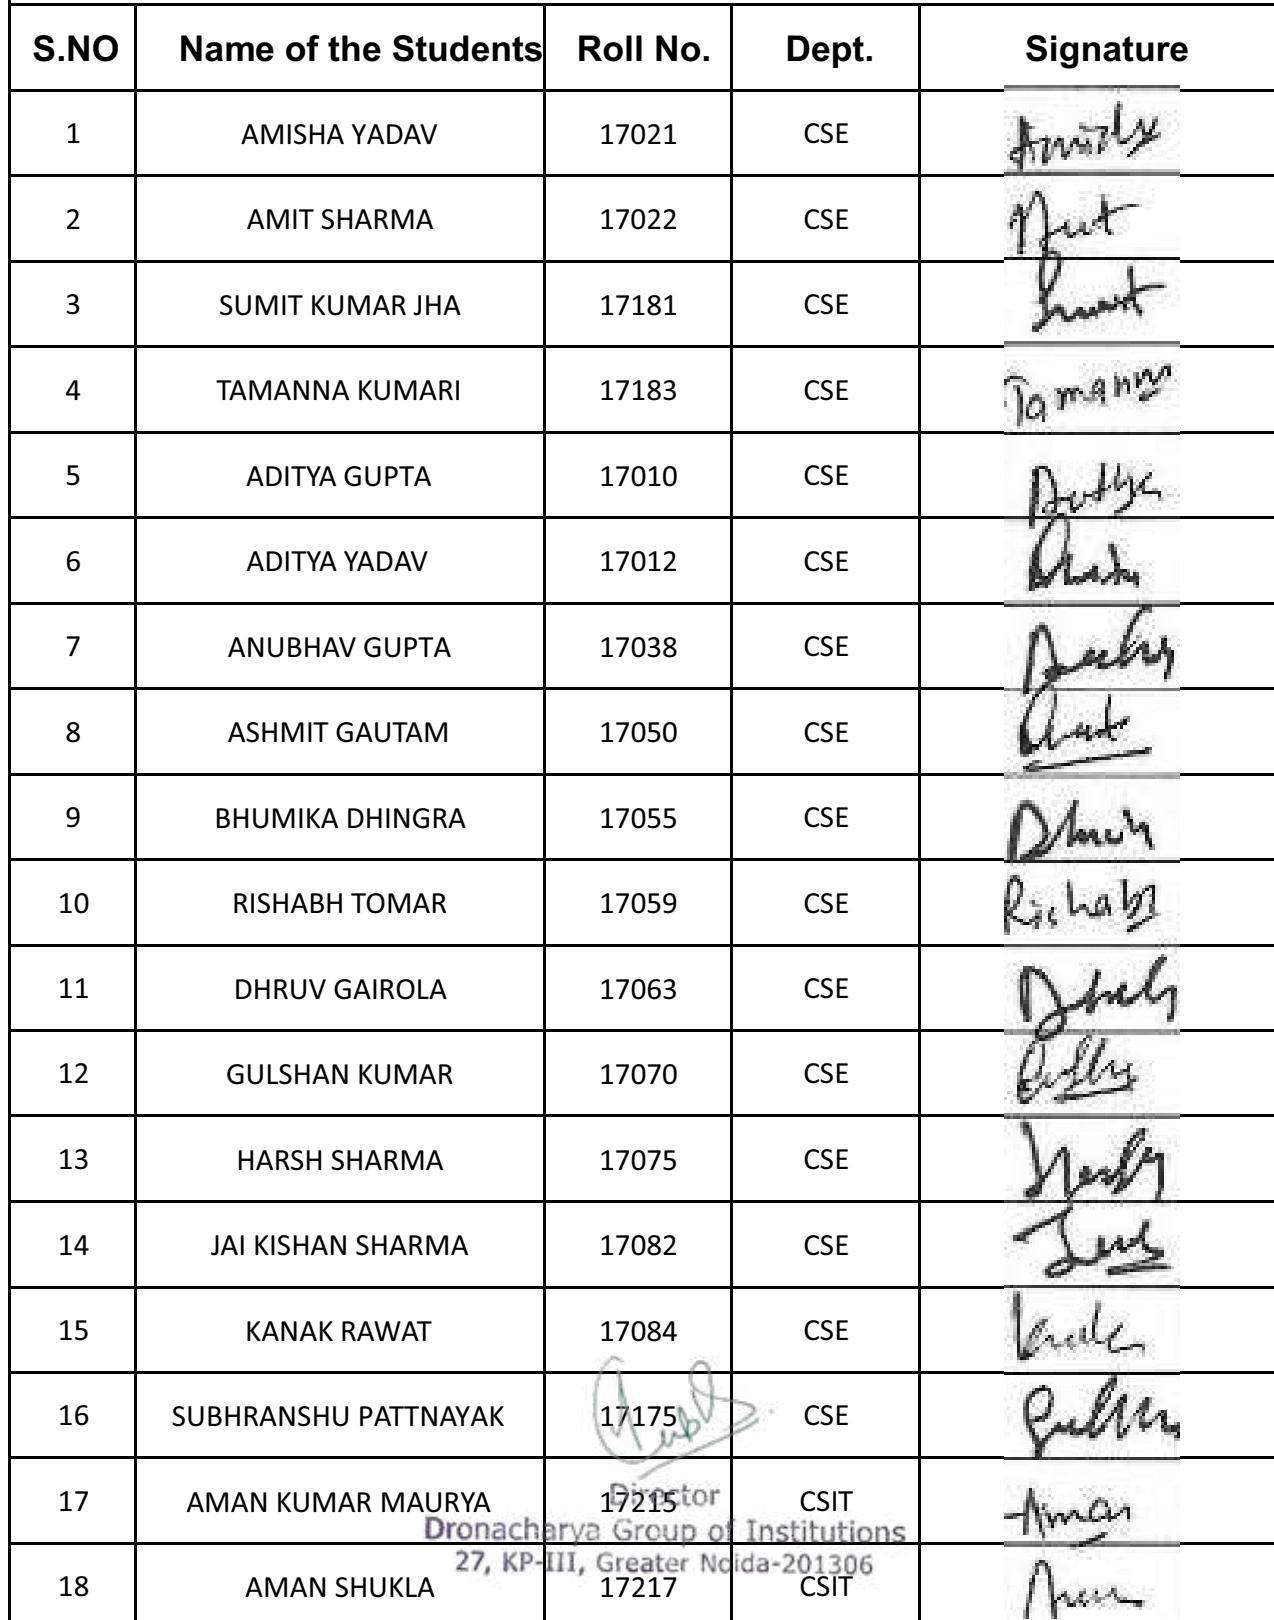 S.NO Name of the Students Roll No. Dept. Signature
1 AMISHA YADAV 17021 CSE
2 AMIT SHARMA 17022 CSE
3 SUMIT KUMAR JHA 17181 CSE
4 TAMANNA KUMARI 17183 CSE Tamanna
5 ADITYA GUPTA 17010 CSE
6 ADITYA YADAV 17012 CSE
7 ANUBHAV GUPTA 17038 CSE
8 ASHMIT GAUTAM 17050 CSE
9 BHUMIKA DHINGRA 17055 CSE
10 RISHABH TOMAR 17059 CSE Rishabh
11 DHRUV GAIROLA 17063 CSE
12 GULSHAN KUMAR 17070 CSE
13 HARSH SHARMA 17075 CSE
14 JAI KISHAN SHARMA 17082 CSE
15 KANAK RAWAT 17084 CSE
16 SUBHRANSHU PATTNAYAK 17175 CSE
17 AMAN KUMAR MAURYA 17215 CSIT Aman
Director
Dronacharya Group of Institutions
27, KP-III, Greater Noida-201306
18 AMAN SHUKLA 17217 CSIT